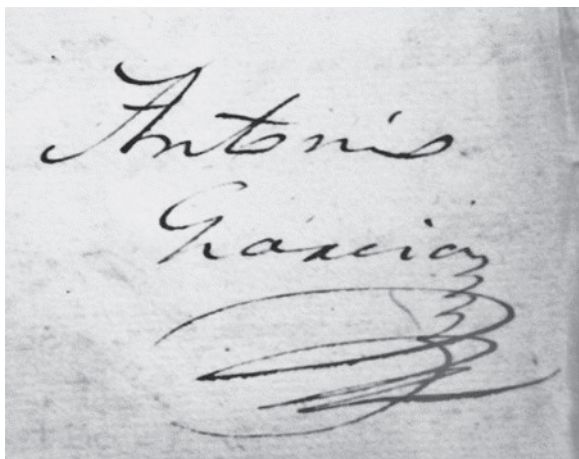 Antonio
Garcia